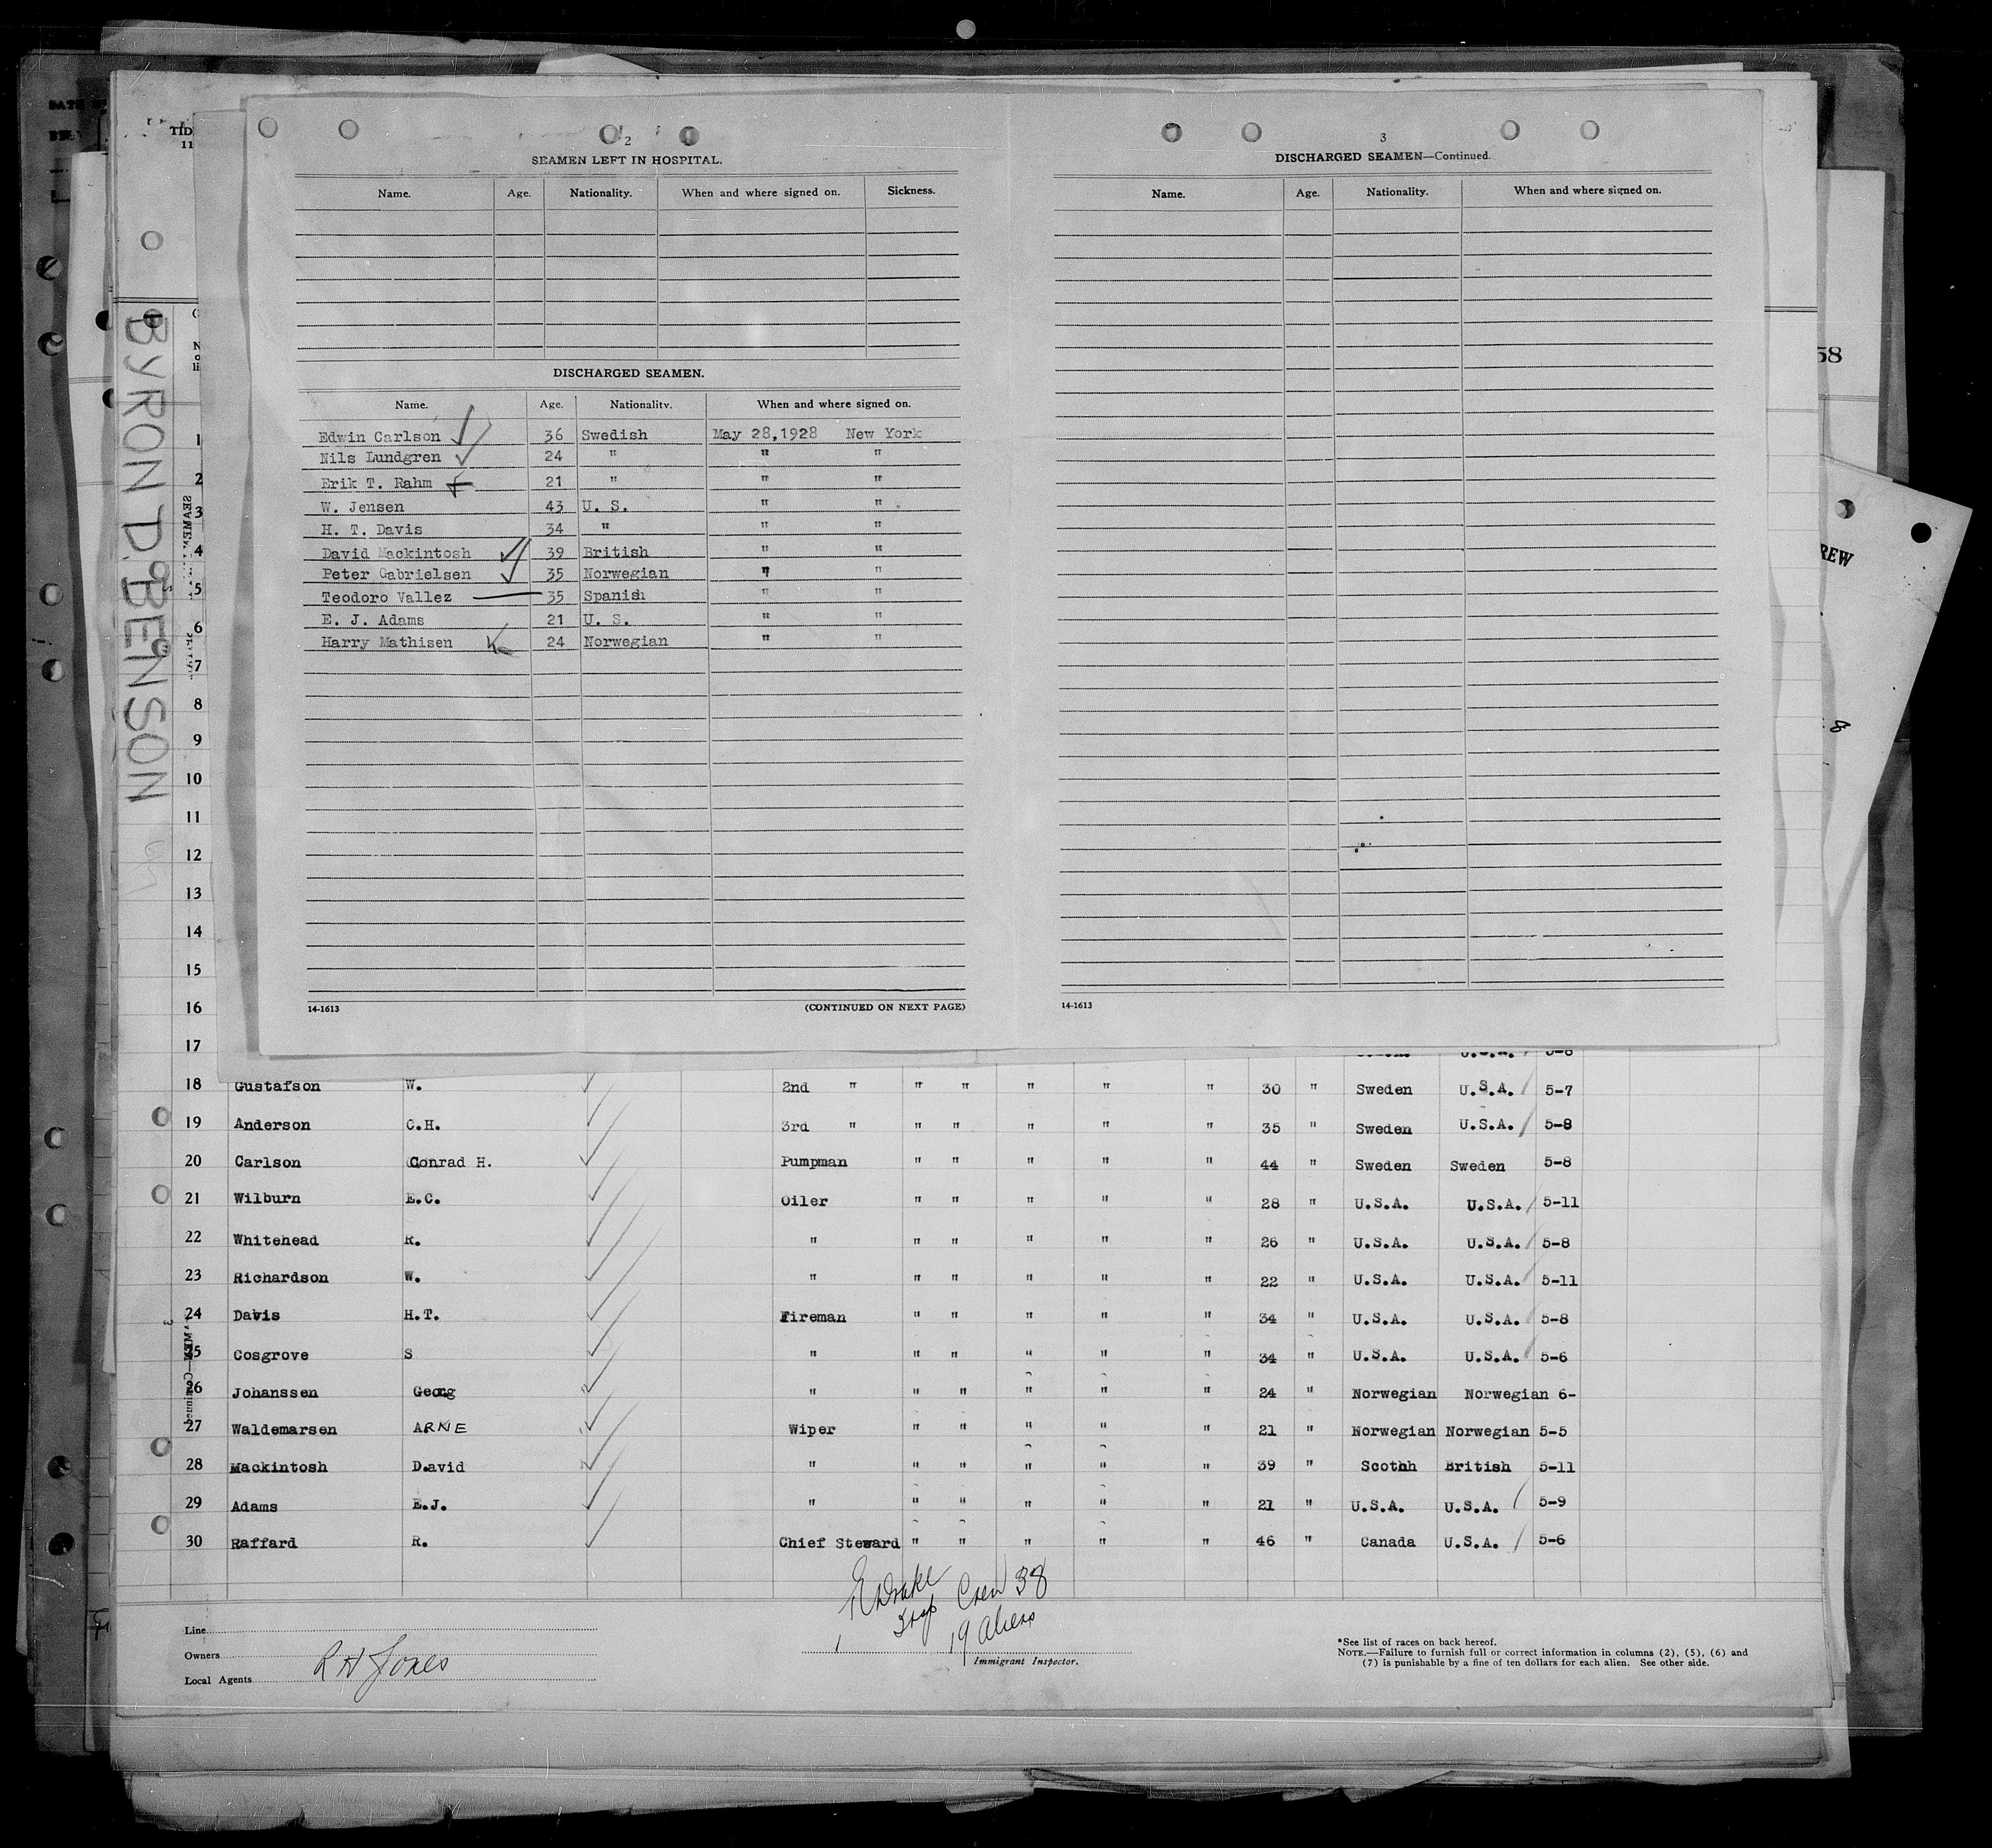 TID
11
2
SEAMEN LEFT IN HOSPITAL.
Name. Age. Nationality. When and where signed on. Sickness.
DISCHARGED SEAMEN.
Name. Age. Nationality. When and where signed on.
Edwin Carlson 36 Swedish May 28,1928 New York
Nils Lundgren 24 " " "
Erik T. Rahm 21 " " "
W. Jensen 43 U. S. " "
H. T. Davis 34 " " "
David Mackintosh 39 British " "
Peter Gabrielsen 35 Norwegian " "
Teodoro Vallez 35 Spanish " "
E. J. Adams 21 U. S. " "
Harry Mathisen 24 Norwegian " "
14-1613 (CONTINUED ON NEXT PAGE)
3
DISCHARGED SEAMEN—Continued.
Name. Age. Nationality. When and where signed on.
14-1613
58
REW
8
BYRON D. BENSON
1
2
3
4
5
6
7
8
9
10
11
12
13
14
15
16
17
18 Gustafson W. 2nd " " " " " " 30 " Sweden U.S.A. 5-7
19 Anderson C.H. 3rd " " " " " " 35 " Sweden U.S.A. 5-8
20 Carlson Conrad H. Pumpman " " " " " 44 " Sweden Sweden 5-8
21 Wilburn E.C. Oiler " " " " " 28 " U.S.A. U.S.A. 5-11
22 Whitehead R. " " " " " " 26 " U.S.A. U.S.A. 5-8
23 Richardson W. " " " " " " 22 " U.S.A. U.S.A. 5-11
24 Davis H.T. Fireman " " " " " 34 " U.S.A. U.S.A. 5-8
25 Cosgrove S " " " " " " 34 " U.S.A. U.S.A. 5-6
26 Johanssen Georg " " " " " " 24 " Norwegian Norwegian 6-
27 Waldemarsen ARNE Wiper " " " " " 21 " Norwegian Norwegian 5-5
28 Mackintosh David " " " " " " 39 " Scothh British 5-11
29 Adams E.J. " " " " " " 21 " U.S.A. U.S.A. 5-9
30 Raffard R. Chief Steward " " " " " 46 " Canada U.S.A. 5-6
Drake
Insp Crew 38
19 Aliens
Immigrant Inspector.
Line
Owners
Local Agents R H Jones
*See list of races on back hereof.
NOTE.—Failure to furnish full or correct information in columns (2), (5), (6) and
(7) is punishable by a fine of ten dollars for each alien. See other side.